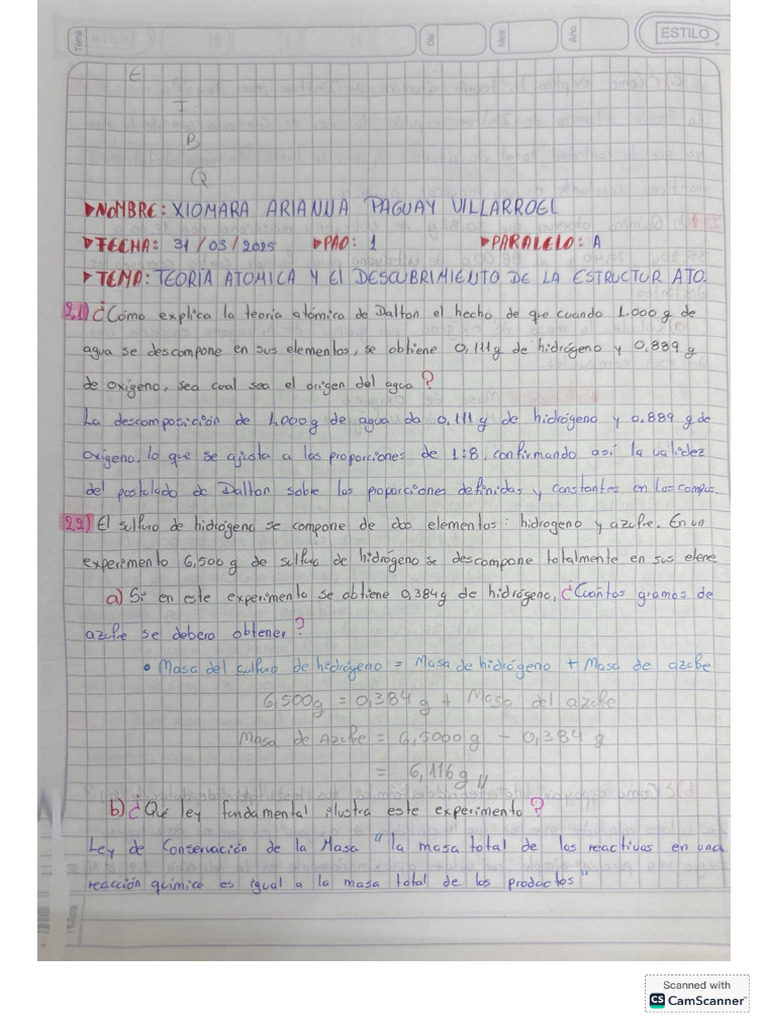 Tema
Día
Mes
Año
ESTILO
E
T
B
Q
▶NOMBRE: XIOMARA ARIANNA PAGUAY VILLARROEL
▶FECHA: 31/03/2025 ▶PAO: 1 ▶PARALELO: A
▶TEMA: TEORÍA ATOMICA Y El DESCUBRIMIENTO DE LA ESTRUCTUR ATO.
2.1) ¿Cómo explica la teoría atómica de Dalton el hecho de que cuando 1.000 g de
agua se descompone en sus elementos, se obtiene 0,111g de hidrógeno y 0,889 g
de oxígeno, sea cual sea el origen del agua?
La descomposición de 1,000g de agua da 0,111g de hidrógeno y 0.889 g de
oxígeno, lo que se ajusta a las proporciones de 1:8, confirmando así la validez
del postulado de Dalton sobre las proporciones definidas y constantes en los compus.
2.2) El sulfuro de hidrógeno se compone de dos elementos: hidrogeno y azufre. En un
experimento 6,500 g de sulfuro de hidrógeno se descompone totalmente en sus eleme
a) Si en este experimento se obtiene 0,384g de hidrógeno, ¿Cuántos gramos de
azufre se debera obtener?
• Masa del sulfuro de hidrógeno = Masa de hidrógeno + Masa de azufre
6,500g = 0,384 g + Masa del azufre
Masa de Azufre = 6,5000 g - 0,384 g
= 6,116g //
b) ¿Qué ley fundamental ilustra este experimento?
Ley de Conservación de la Masa "la masa total de los reactivos en una
reacción química es igual a la masa total de los productos"
Scanned with
CS CamScanner